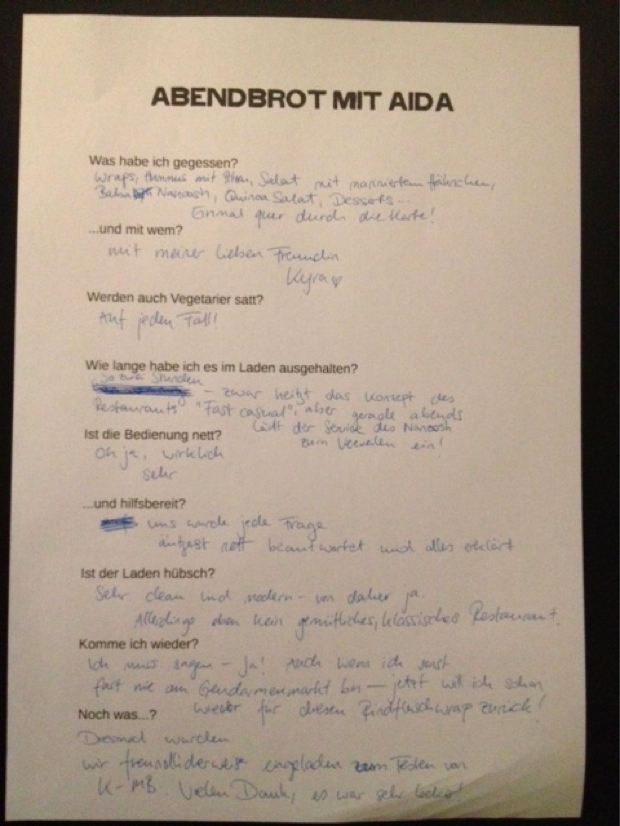 ABENDBROT MIT AIDA
Was habe ich gegessen?
Wraps, Hummus mit Salat mit mariniertem Hähnchen,
Nanoosh, Quinoa Salat, Desserts...
Einmal quer durch die Karte!
...und mit wem?
mit meiner lieben Freundin
Kyra ♥
Werden auch Vegetarier satt?
Auf jeden Fall!
Wie lange habe ich es im Laden ausgehalten?
So zwei Stunden
– zwar heißt das Konzept des
Restaurants "Fast casual", aber gerade abends
lädt der Service des Nanoosh
zum Verweilen ein!
Ist die Bedienung nett?
Oh ja, wirklich
sehr
...und hilfsbereit?
uns wurde jede Frage
äußerst nett beantwortet und alles erklärt
Ist der Laden hübsch?
Sehr clean und modern – von daher ja.
Allerdings eben kein gemütliches, klassisches Restaurant.
Komme ich wieder?
Ich muss sagen – ja! Auch wenn ich sonst
fast nie am Gendarmenmarkt bin – jetzt will ich schon
wieder für diesen Rindfleischwrap zurück!
Noch was...?
Diesmal wurden
wir freundlicherweise eingeladen zum Testen von
K-MB. Vielen Dank, es war sehr lecker!